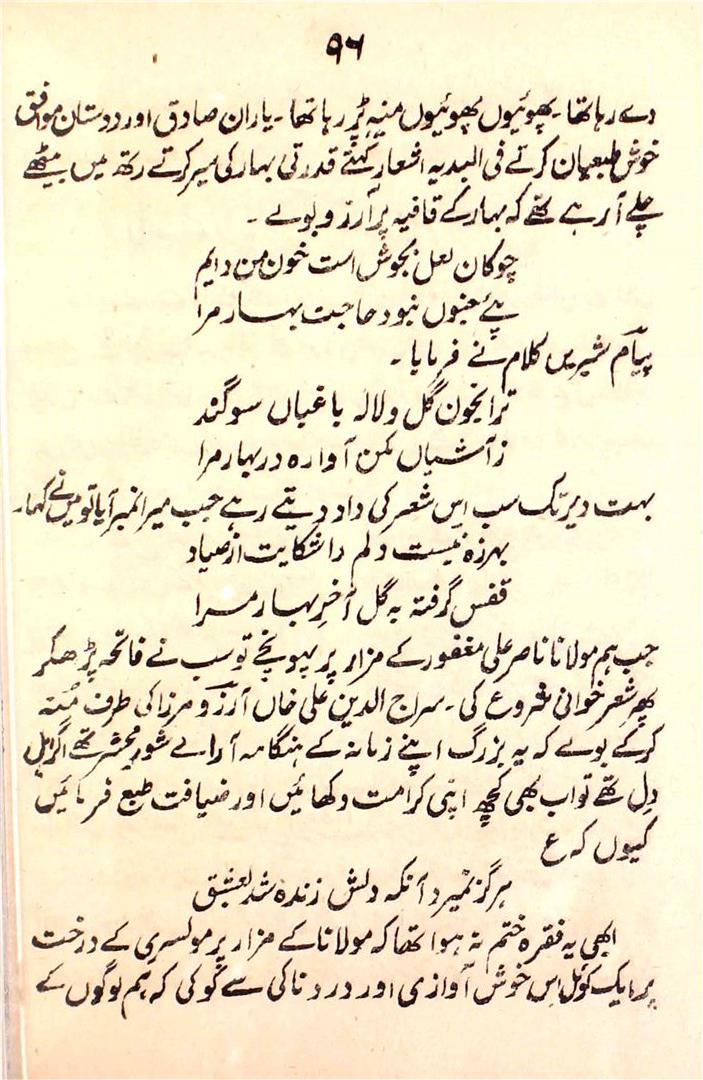 ۹۶
دے رہا تھا۔ پھوئیوں پھوئیوں منیہ پڑ رہا تھا۔ یاران صادق اور دوستان موافق
خوش طبعیان کرتے فی البدیہ اشعار کہتے قدرتی بہار کی سیر کرتے رتھ میں بیٹھے
چلے آ رہے تھے کہ بہار کے قافیہ پر آرزو بولے ۔
چوکان لعل بجوش است خون من دایم
پئے جنوں نبود حاجت بہار مرا
پیام شیریں کلام نے فرمایا ۔
ترا بخون گل و لالہ باغباں سوگند
ز آشیاں مکن آوارہ در بہار مرا
بہت دیر تک سب اس شعر کی داد دیتے رہے جب میرا نمبر آیا تو میں نے کہا۔
بہرزہ نیست دلم را شکایت از صیاد
قفس گرفتہ بہ گل آخر بہار مرا
جب ہم مولانا ناصر علی مغفور کے مزار پر پہونچے تو سب نے فاتحہ پڑھکر
پھر شعر خوانی شروع کی۔ سراج الدین علی خاں آرزو مرزا کی طرف منہ
کر کے بولے کہ یہ بزرگ اپنے زمانہ کے ہنگامہ آرائے شور محشر تھے اگر اہل
دل تھے تو اب بھی کچھ اپنی کرامت دکھائیں اور ضیافت طبع فرمائیں
کیوں کہ ع
ہرگز نمیرد آنکہ دلش زندہ شد بعشق
ابھی یہ فقرہ ختم نہ ہوا تھا کہ مولانا کے مزار پر مولسری کے درخت
پر ایک کوئل اس خوش آوازی اور دردناکی سے کوکی کہ ہم لوگوں کے